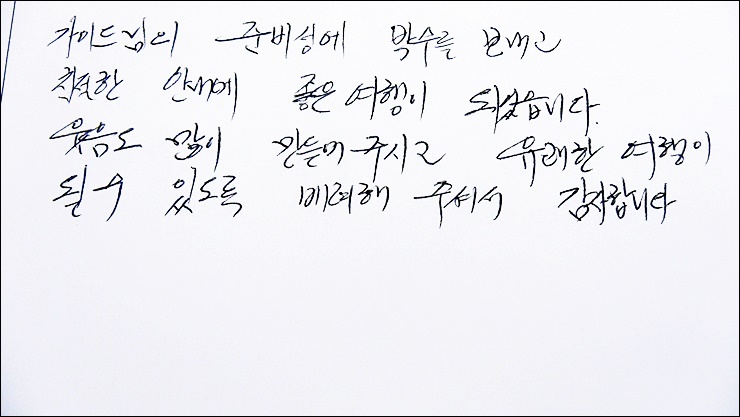 가이드님의 준비성에 박수를 보내고
친절한 안내에 좋은 여행이 되었습니다.
웃음도 많이 만들어 주시고 유쾌한 여행이
될 수 있도록 배려해 주셔서 감사합니다